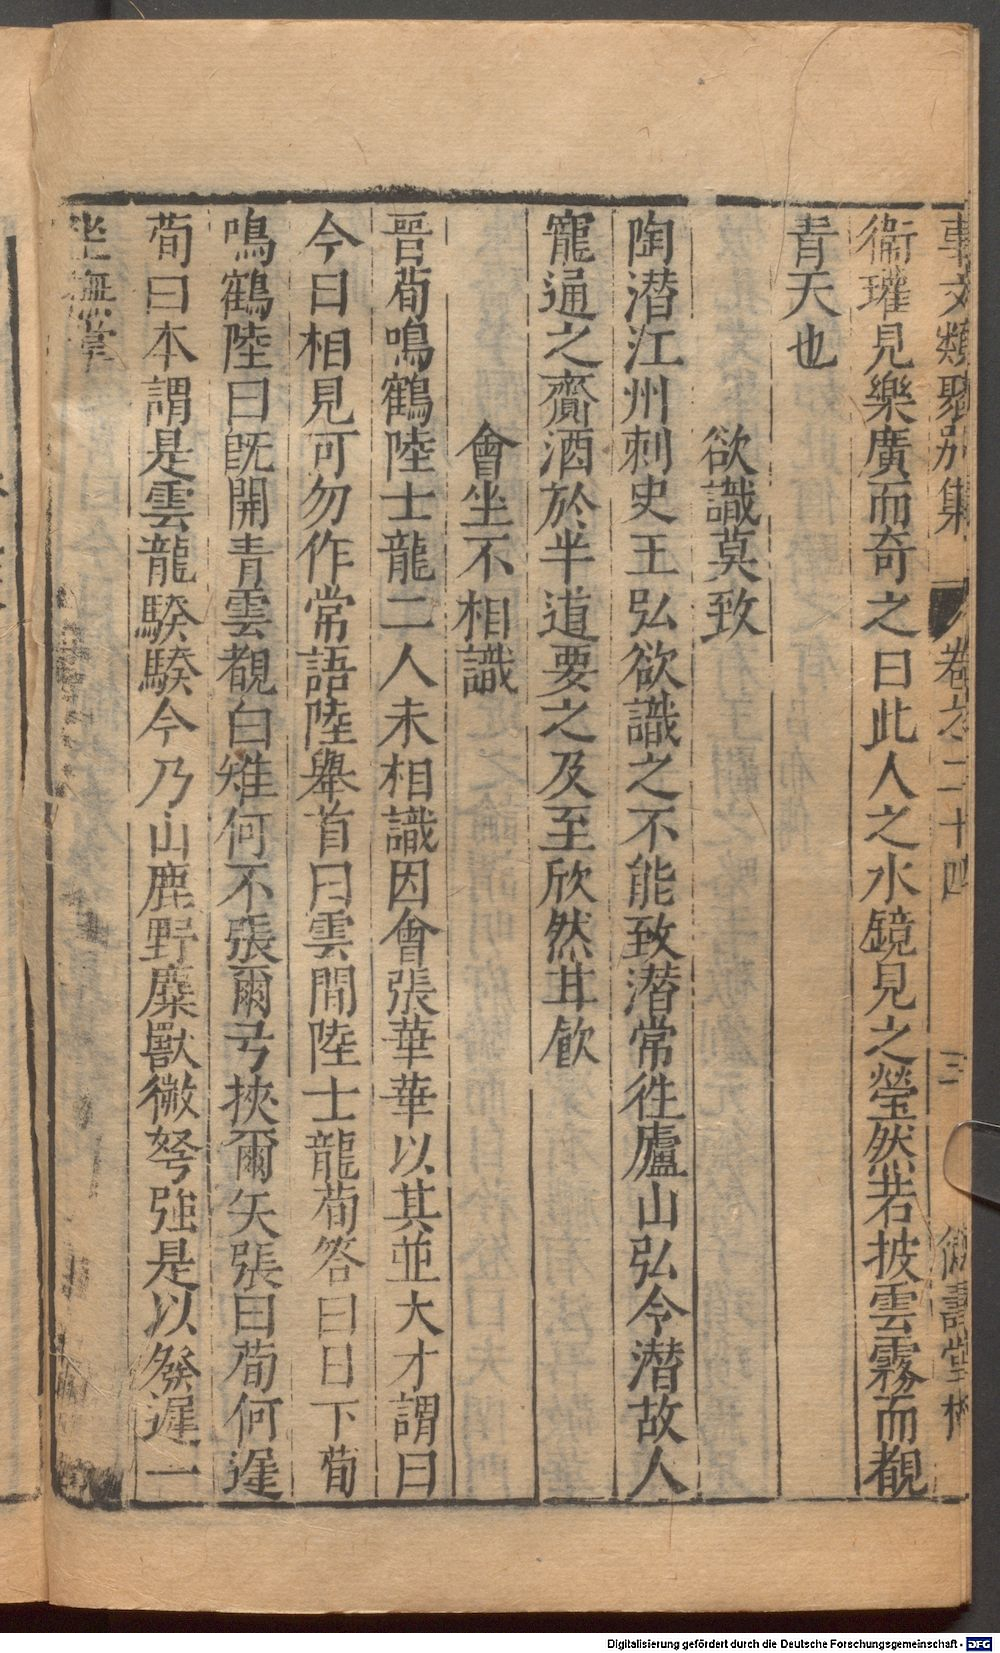 事文類聚別集 卷之二十四 三
衞瓘見樂廣而奇之曰此人之水鏡見之瑩然若披雲霧而覩
青天也
欲識莫致
陶潜江州刺史王弘欲識之不能致潜常徃廬山弘令潜故人
寵通之齎酒於半道要之及至欣然共飲
會坐不相識
晉荀鳴鶴陸士龍二人未相識因會張華華以其並大才謂曰
今日相見可勿作常語陸舉首曰雲間陸士龍荀答曰日下荀
鳴鶴陸曰旣開青雲覩白雉何不張爾弓挾爾矢張曰荀何遲
荀曰本謂是雲龍騤騤今乃山鹿野麋獸微弩强是以發遲一
坐撫掌
Digitalisierung gefördert durch die Deutsche Forschungsgemeinschaft - DFG